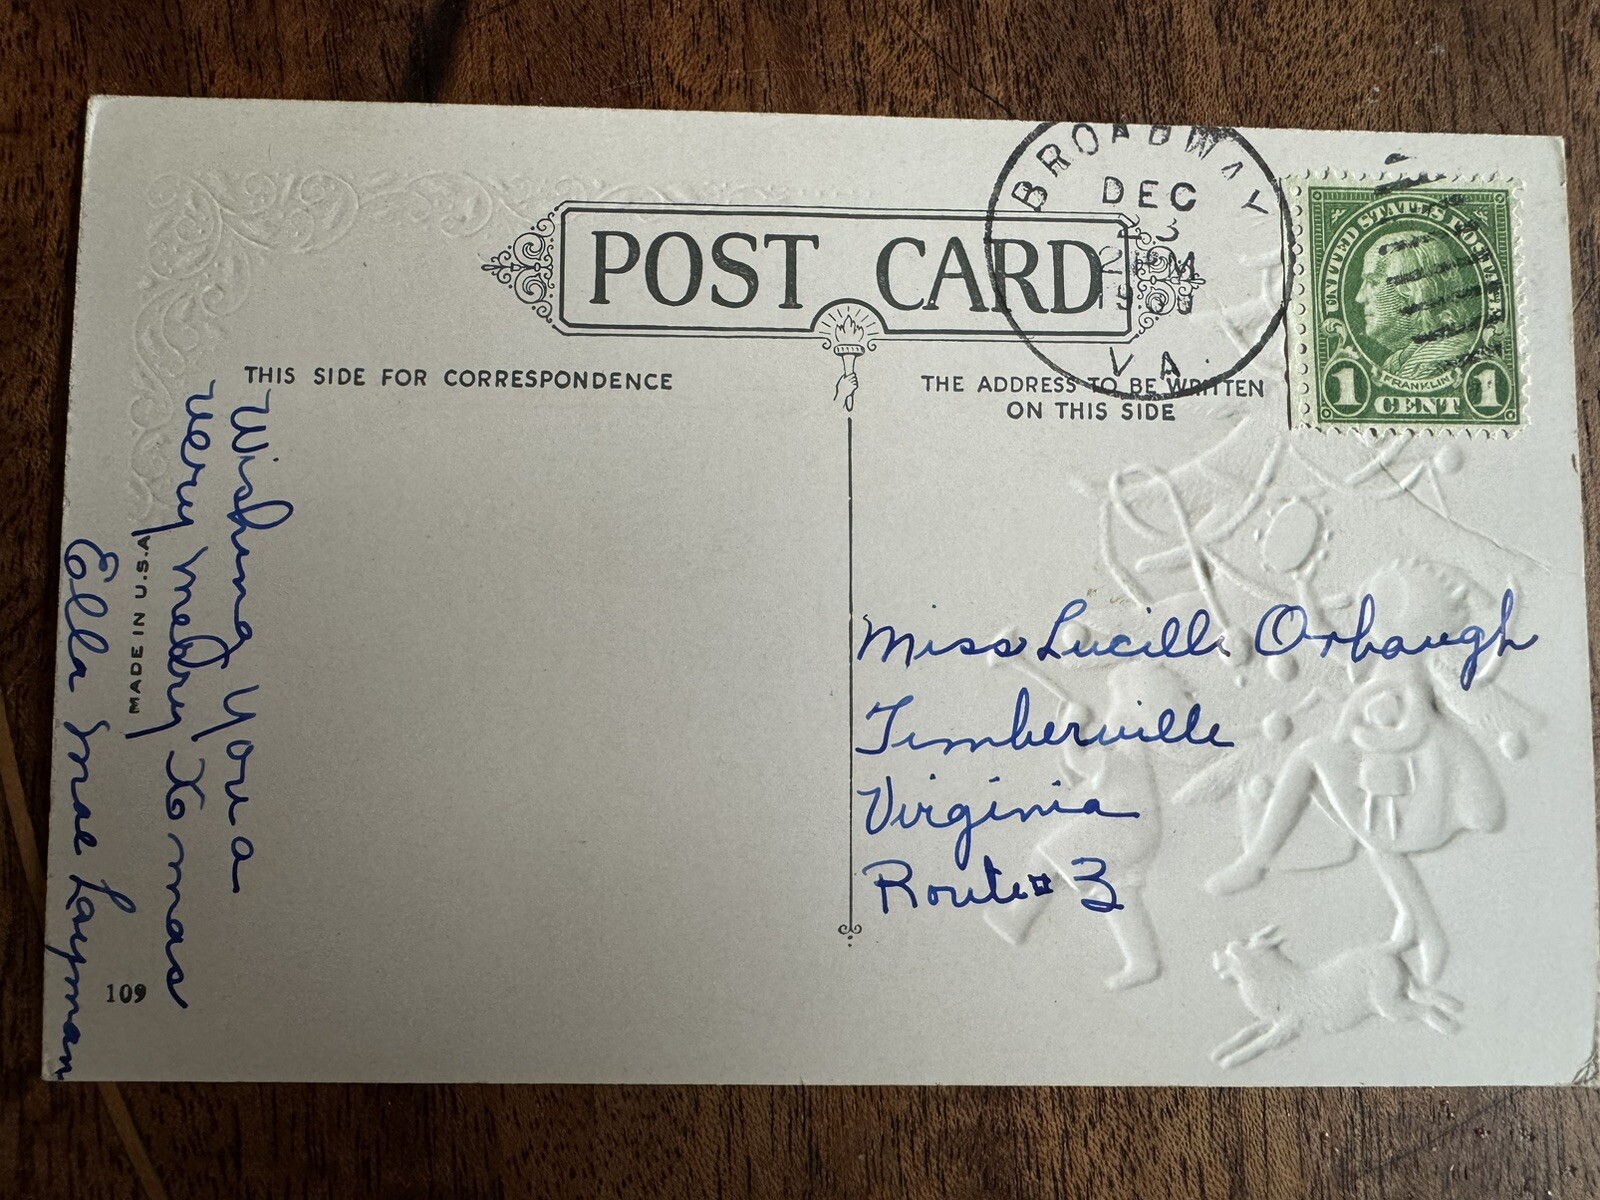 BROADWAY
DEC
VA.
UNITED STATES POSTAGE
FRANKLIN
1 CENT 1
POST CARD
THIS SIDE FOR CORRESPONDENCE
THE ADDRESS TO BE WRITTEN
ON THIS SIDE
Wishing You a
very merry Xmas
Ella Mae Layman
MADE IN U.S.A.
109
Miss Lucille Orbaugh
Timberville
Virginia
Route # 3